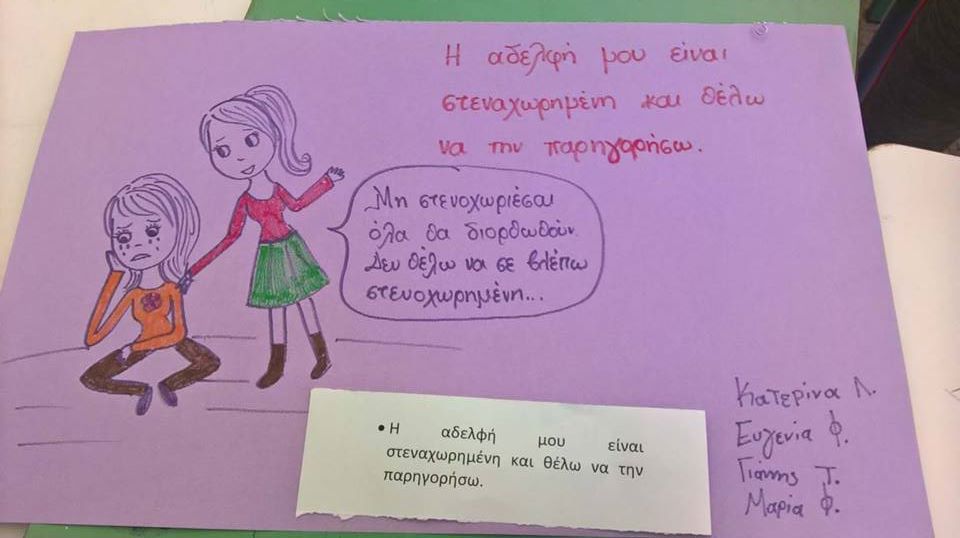 Η αδελφή μου είναι
στεναχωρημένη και θέλω
να την παρηγορήσω.
Μη στενοχωριέσαι
όλα θα διορθωθούν.
Δεν θέλω να σε βλέπω
στενοχωρημένη...
• Η αδελφή μου είναι
στεναχωρημένη και θέλω να την
παρηγορήσω.
Κατερίνα Λ.
Ευγενία Φ.
Γιάννης Τ.
Μαρία Φ.